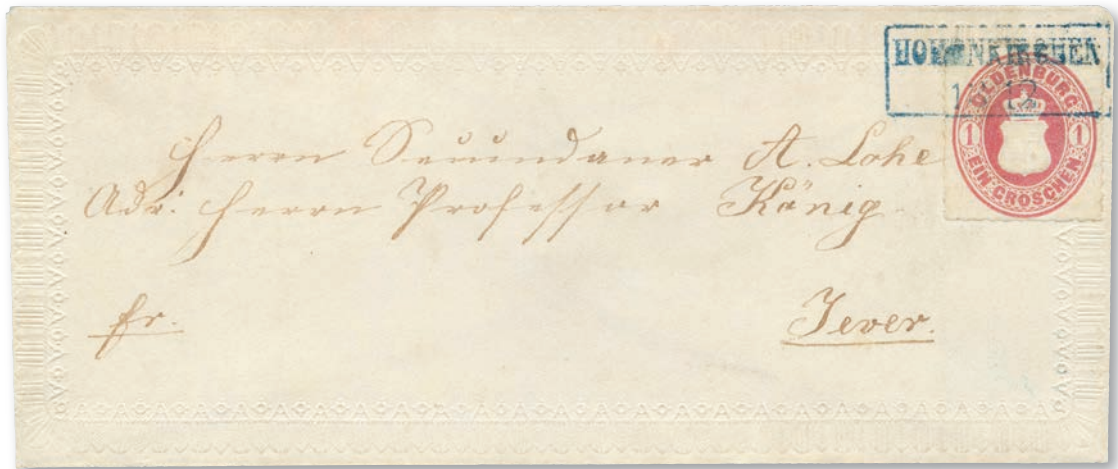 HOHENKIRCHEN
12
OLDENBURG
1 1
EIN GROSCHEN
Herrn Secundaner A. Lohe
Adr: Herrn Professor König.
fr.
Jever.